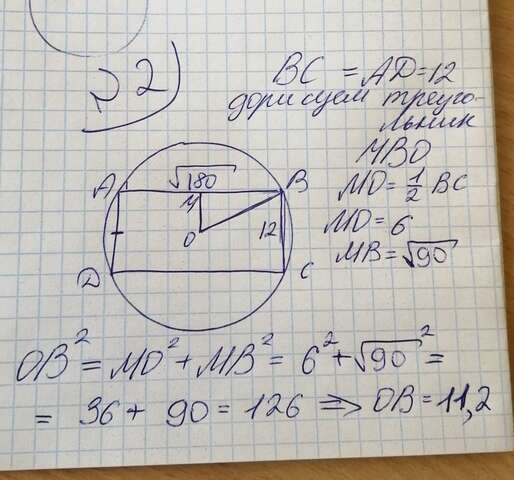 2)
BC = AD = 12
дорисуем треуго-
льник
MBO
MO = 1/2 BC
MO = 6
MB = √90
A √180 B
M
O 12
D C
OB² = MO² + MB² = 6² + √90² =
= 36 + 90 = 126 => OB = 11,2